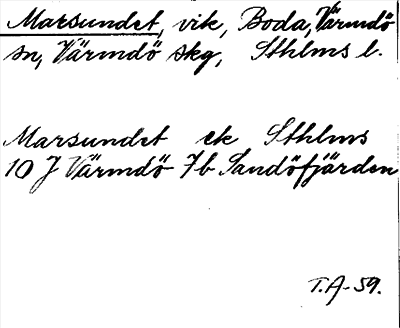 Marsundet, vik, Boda, Värmdö
sn, Värmdö skg, Sthlms l.
Marsundet ek Sthlms
10 J Värmdö 7b Sandöfjärden
T.A-59.